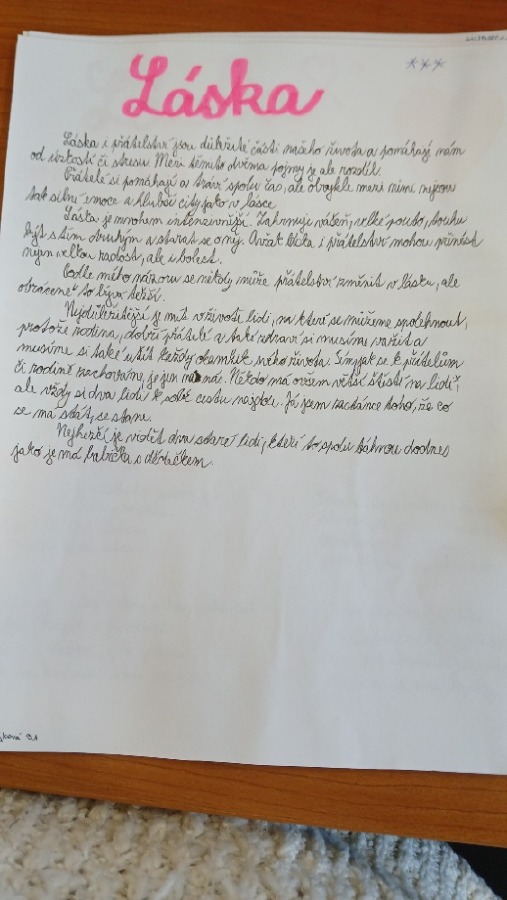 ***
Láska
Láska i přátelství jsou důležité části našeho života a pomáhají nám
od úzkosti či stresu. Mezi těmito dvěma pojmy je ale rozdíl.
Přátelé si pomáhají a tráví spolu čas, ale obvykle mezi nimi nejsou
tak silné emoce a hlubší city jako v lásce.
Láska je mnohem intenzivnější. Zahrnuje vášeň, velké pouto, touhu
být s tím druhým a starat se o něj. Ovšem láska i přátelství mohou přinést
nejen velkou radost, ale i bolest.
Podle mého názoru se někdy může přátelství změnit v lásku, ale
obráceně to bývá těžší.
Nejdůležitější je mít v životě lidi, na které se můžeme spolehnout,
protože rodina, dobří přátelé a také zdraví si musíme vážit a
musíme si také užít každý okamžik svého života. Siny jak se k přátelům
či rodině zachováme, je jen na nás. Někdo má ovšem větší štěstí na lidi,
ale vždy si dva lidi k sobě cestu najdou. Já jsem zastánce toho, že co
se má stát, se stane.
Nejhezčí je vidět dva staré lidi, kteří to spolu táhnou dodnes
jako je má babička s dědečkem.
9.A